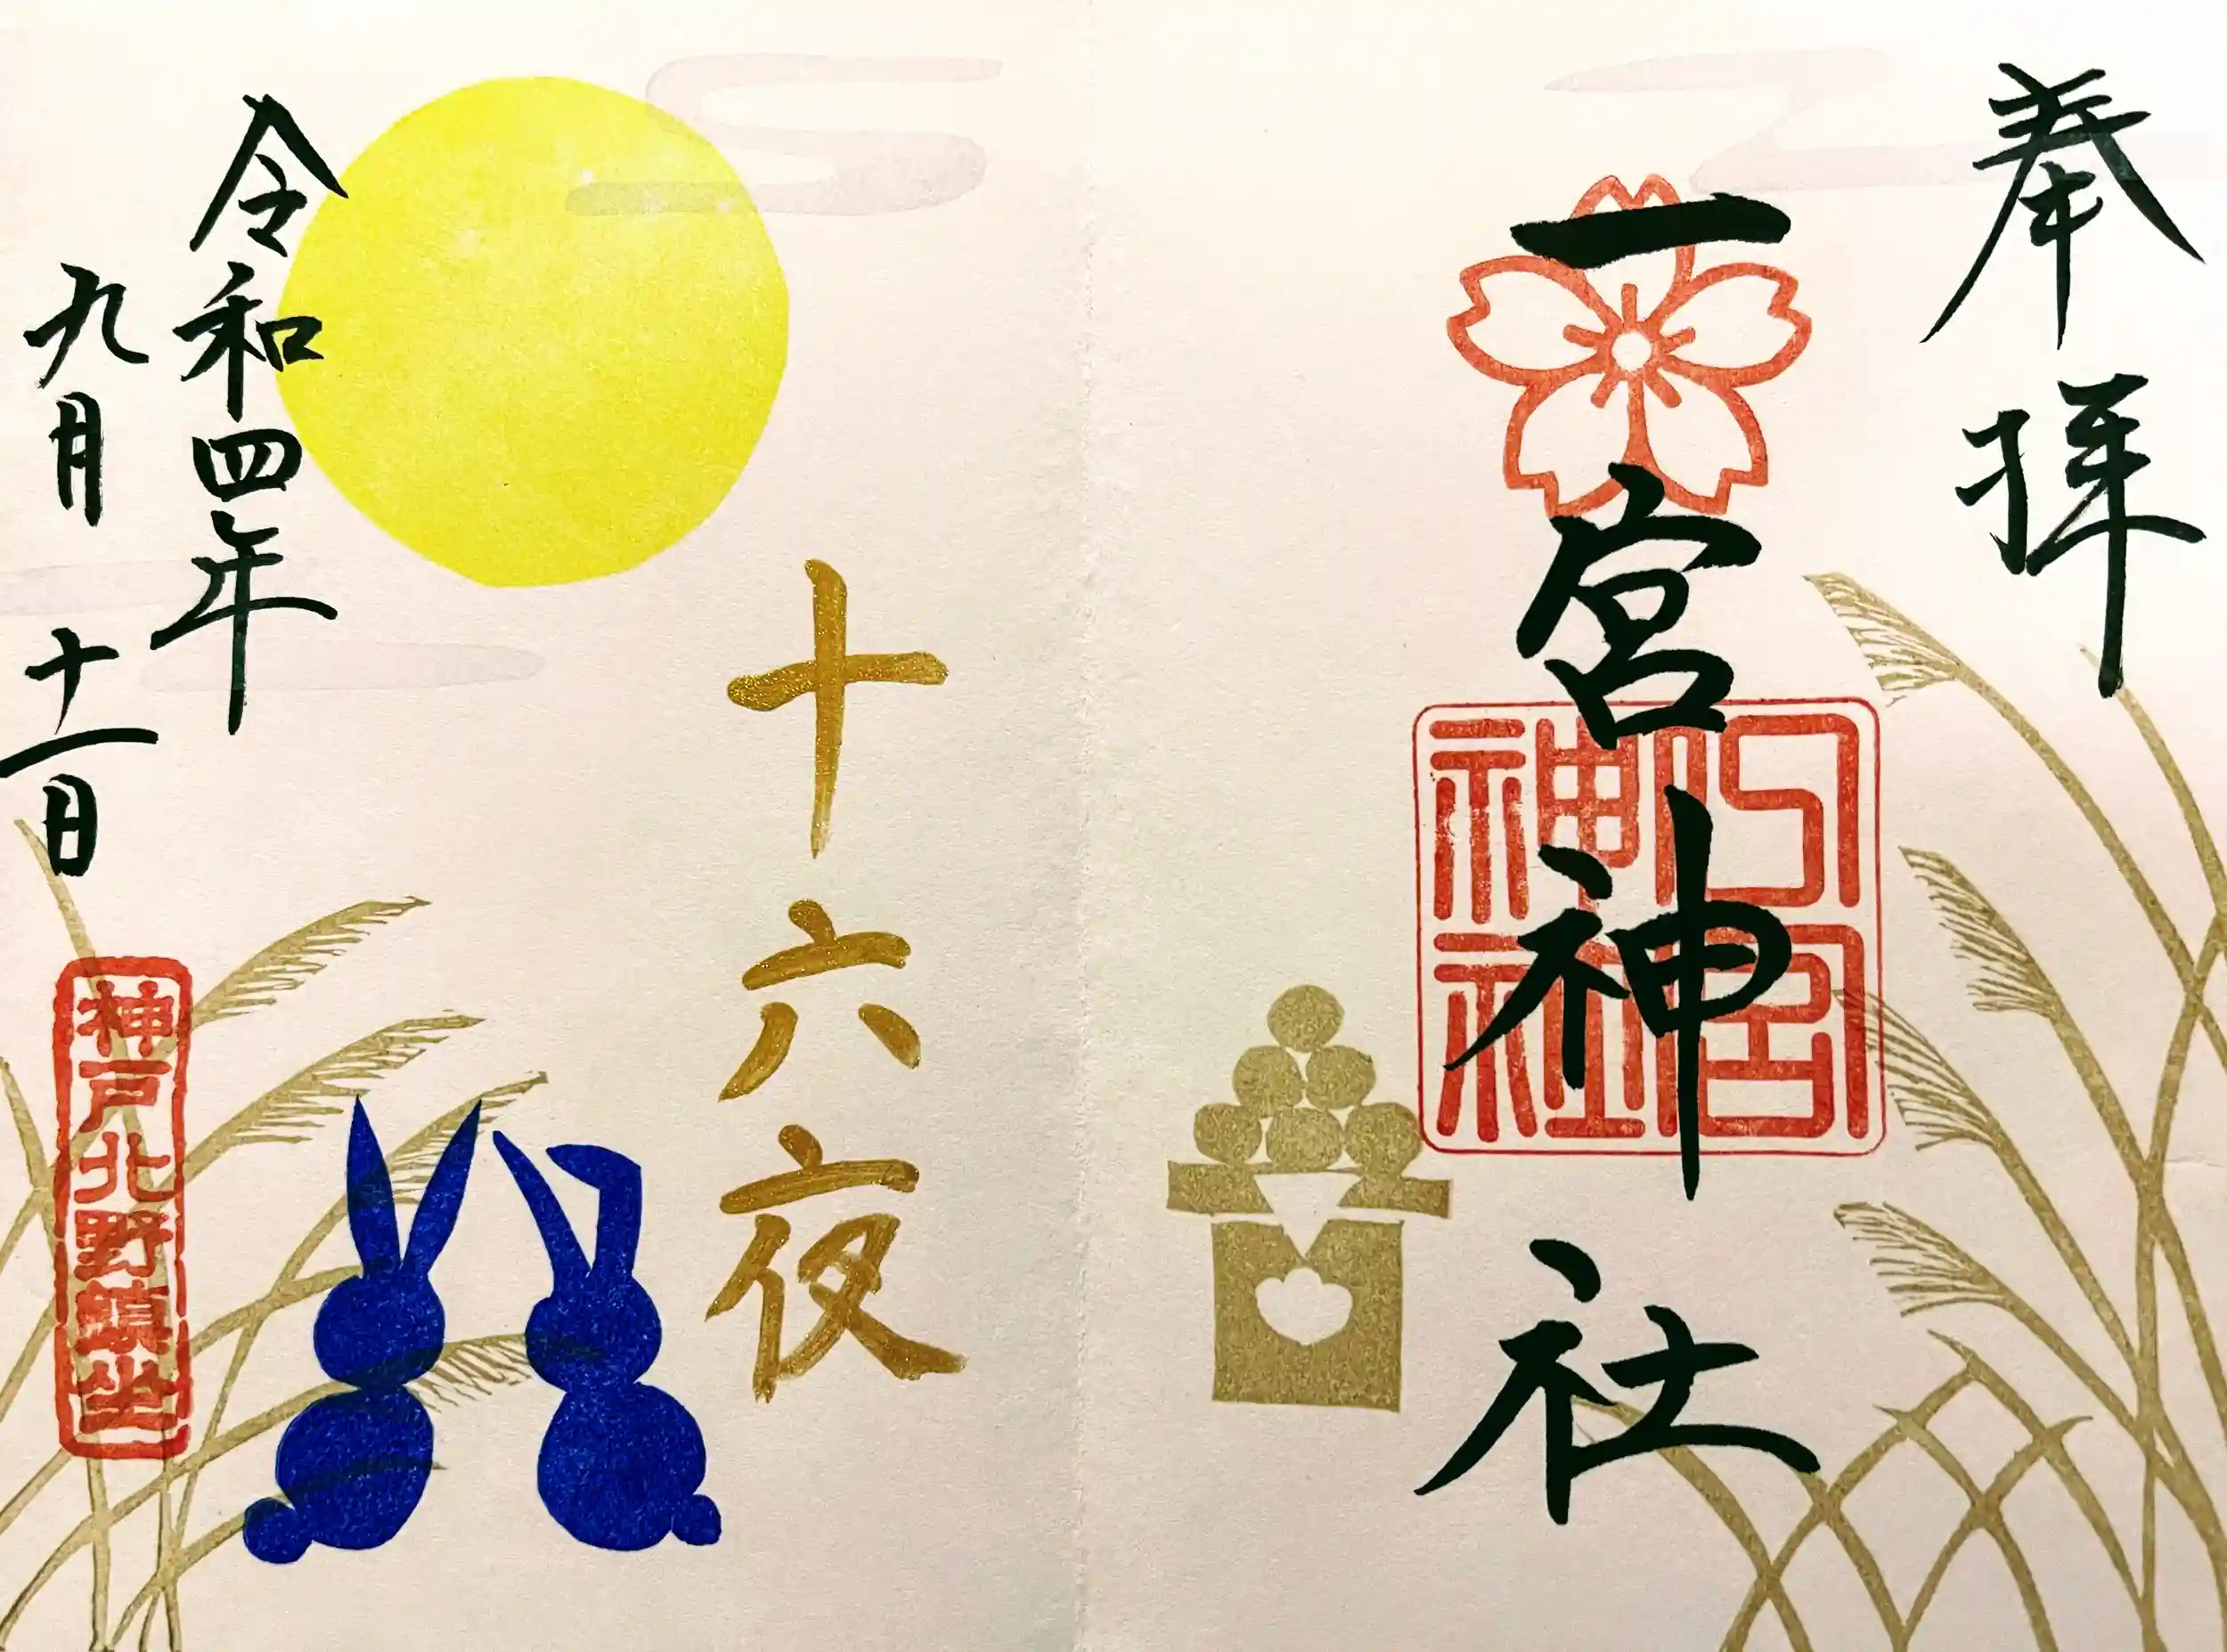 奉拝
一宮神社
一宮神社
十六夜
令和四年
九月十一日
神戸北野鎮坐